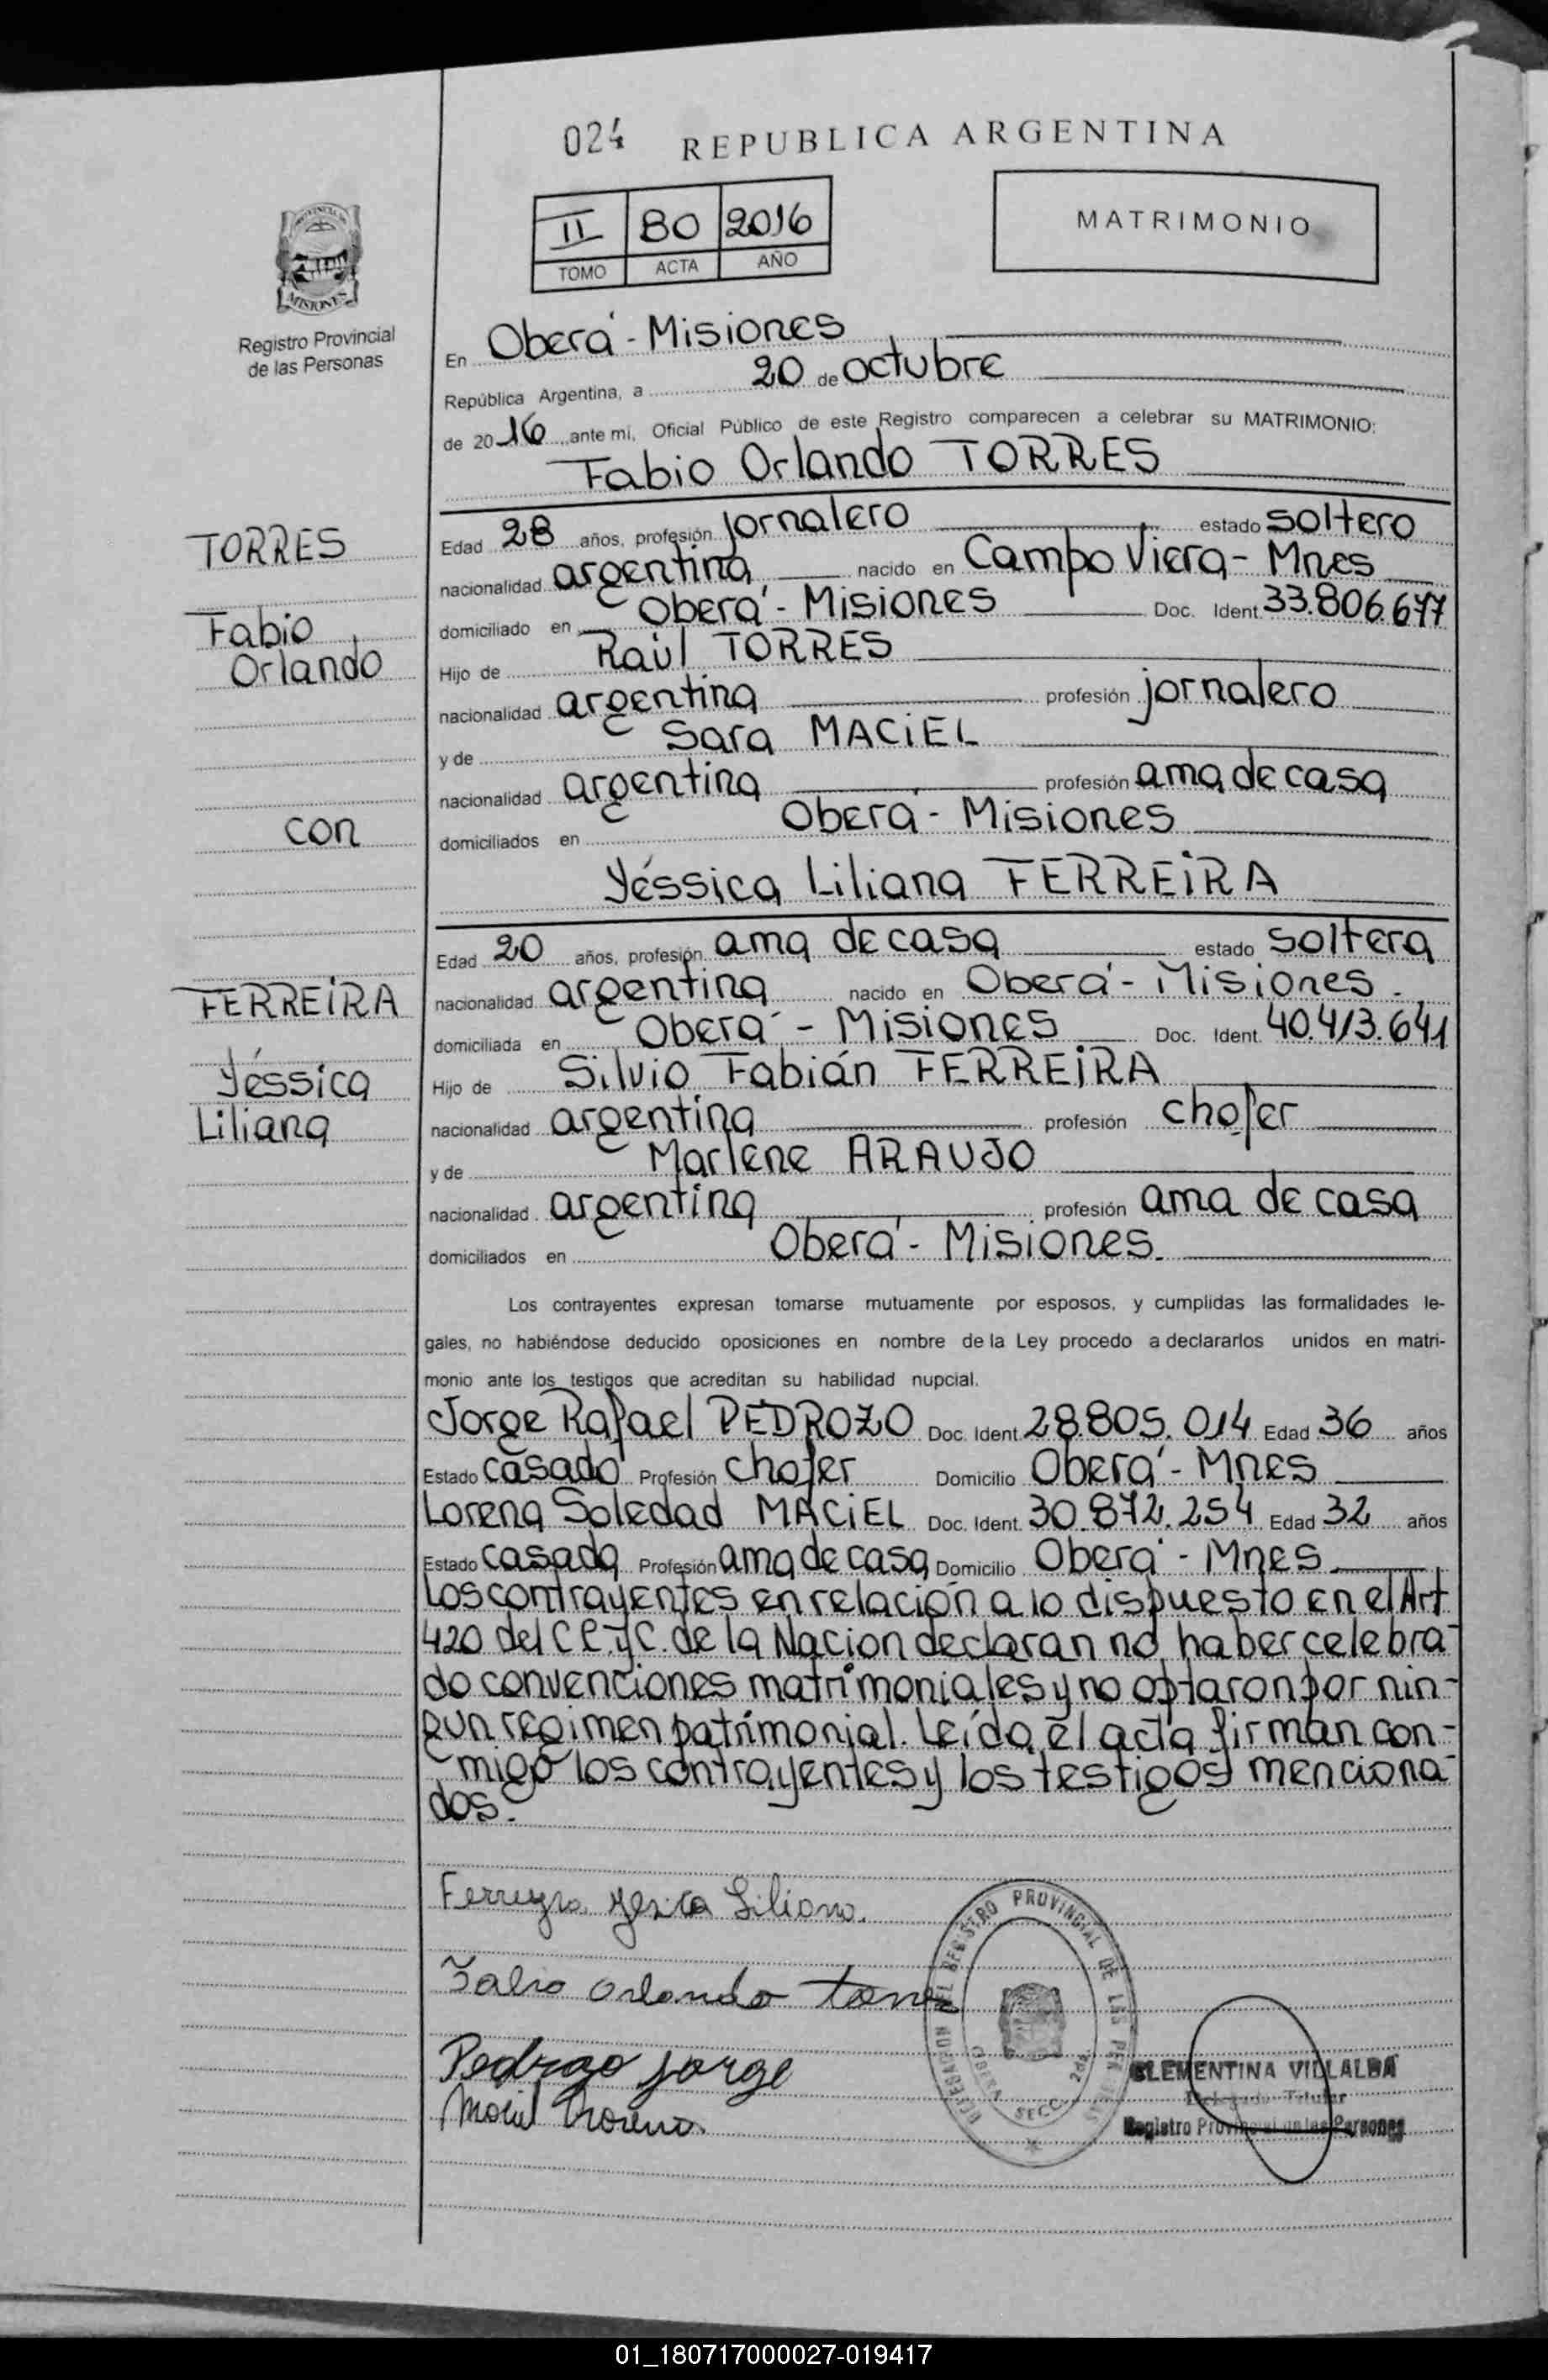 024 REPUBLICA ARGENTINA
II 80 2016
TOMO ACTA AÑO
MATRIMONIO
PROVINCIA DE
MISIONES
Registro Provincial
de las Personas
En Oberá - Misiones
República Argentina, a 20 de octubre
de 2016 ante mí, Oficial Público de este Registro comparecen a celebrar su MATRIMONIO:
Fabio Orlando TORRES
TORRES
Fabio
Orlando
con
FERREIRA
Yéssica
Liliana
Edad 28 años, profesión jornalero estado soltero
nacionalidad argentina nacido en Campo Viera - Mnes
domiciliado en Oberá - Misiones Doc. Ident. 33.806.677
Hijo de Raúl TORRES
nacionalidad argentina profesión jornalero
y de Sara MACIEL
nacionalidad argentina profesión ama de casa
domiciliados en Oberá - Misiones
Yéssica Liliana FERREIRA
Edad 20 años, profesión ama de casa estado soltera
nacionalidad argentina nacido en Oberá - Misiones
domiciliada en Oberá - Misiones Doc. Ident. 40.413.641
Hijo de Silvio Fabián FERREIRA
nacionalidad argentina profesión chofer
y de Marlene ARAUJO
nacionalidad argentina profesión ama de casa
domiciliados en Oberá - Misiones.
Los contrayentes expresan tomarse mutuamente por esposos, y cumplidas las formalidades le-
gales, no habiéndose deducido oposiciones en nombre de la Ley procedo a declararlos unidos en matri-
monio ante los testigos que acreditan su habilidad nupcial.
Jorge Rafael PEDROZO Doc. Ident. 28.805.014 Edad 36 años
Estado casado Profesión chofer Domicilio Oberá - Mnes
Lorena Soledad MACIEL Doc. Ident. 30.872.254 Edad 32 años
Estado casada Profesión ama de casa Domicilio Oberá - Mnes
Los contrayentes en relación a lo dispuesto en el Art
420 del C.C.y C. de la Nacion declaran no haber celebra-
do convenciones matrimoniales y no optaron por nin-
gun regimen patrimonial. Leída el acta firman con-
migo los contrayentes y los testigos menciona-
dos.
Ferreyra Yesica Liliana.
Fabio Orlando torres
Pedrozo Jorge
Maciel Lorena
DELEGACION DEL REGISTRO PROVINCIAL DE LAS PERSONAS
OBERA SECC. 2da
CLEMENTINA VILLALBA
Delegada Titular
Registro Provincial de las Personas
01_180717000027-019417